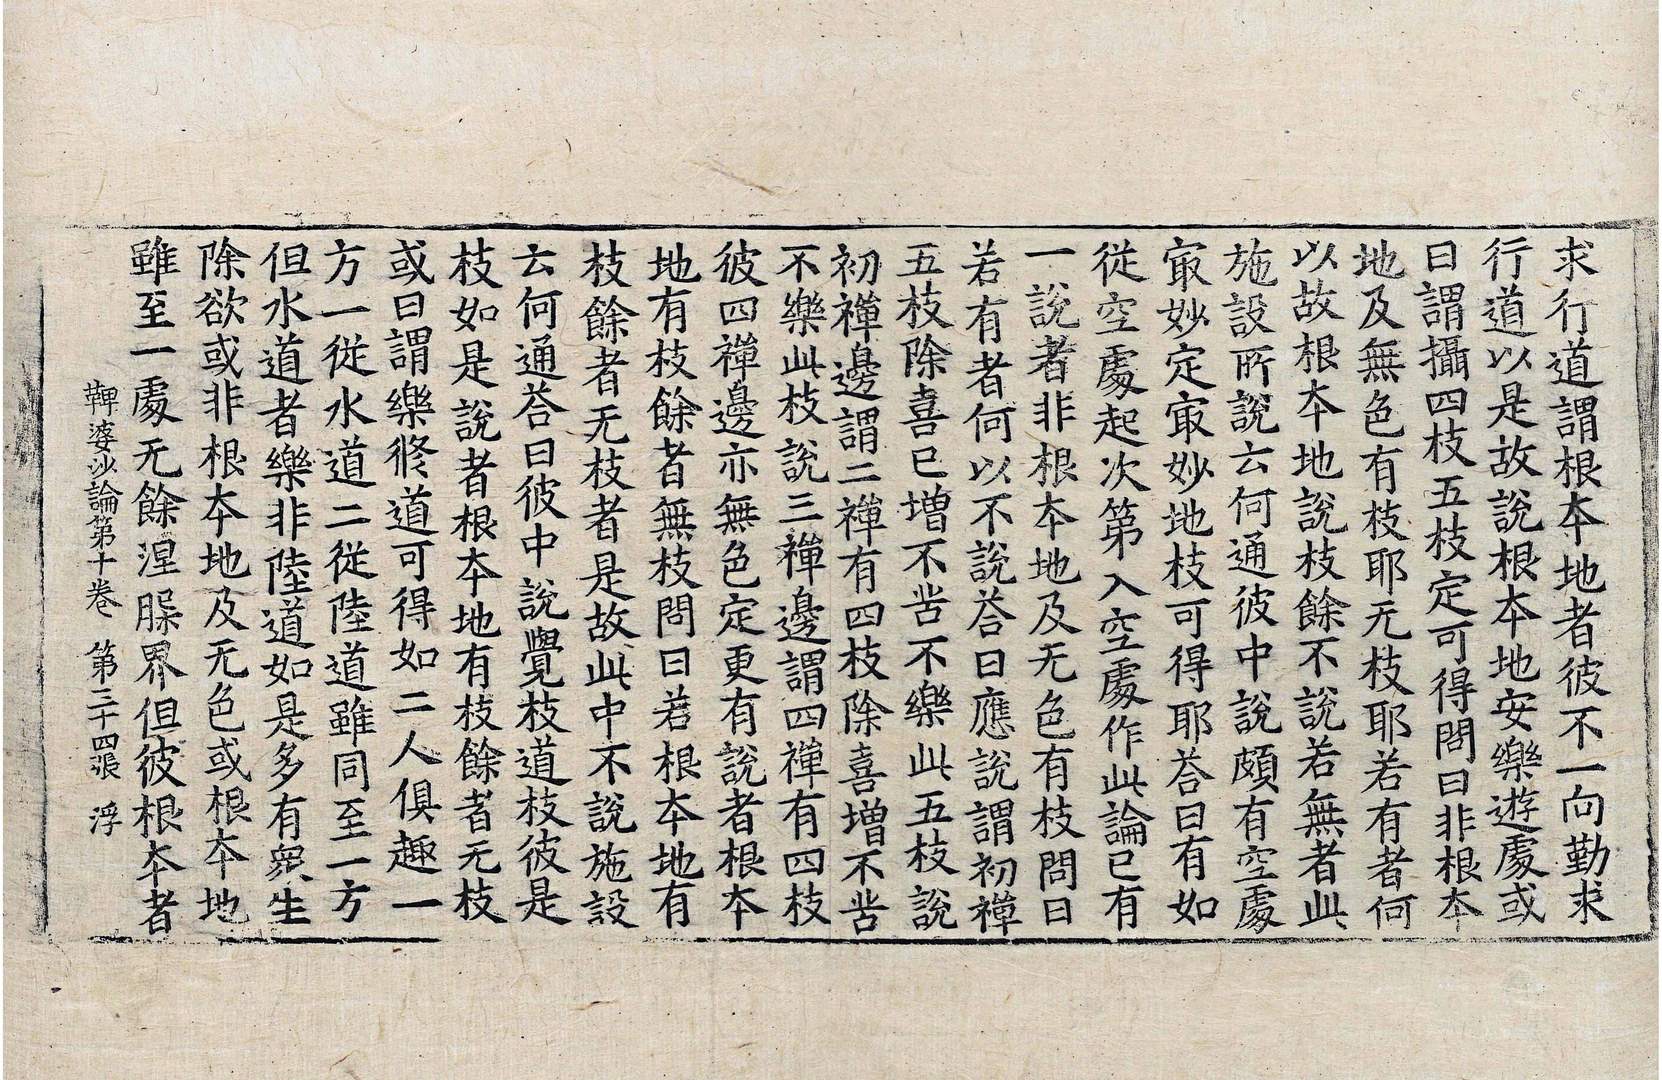 求行道謂根夲地者彼不一向勤求
行道以是故說根夲地安樂遊處或
曰謂攝四枝五枝定可得問曰非根夲
地及無色有枝耶无枝耶若有者何
以故根夲地說枝餘不說若無者此
施設所說云何通彼中說頗有空處
㝡妙定㝡妙地枝可得耶荅曰有如
從空處起次第入空處作此論已有
一說者非根夲地及无色有枝問曰
若有者何以不說荅曰應說謂初禪
五枝除喜已增不苦不樂此五枝說
初禪邊謂二禪有四枝除喜增不苦
不樂此枝說三禪邊謂四禪有四枝
彼四禪邊亦無色定更有說者根夲
地有枝餘者無枝問曰若根夲地有
枝餘者无枝者是故此中不說施設
云何通荅曰彼中說覺枝道枝彼是
枝如是說者根夲地有枝餘者无枝
或曰謂樂修道可得如二人俱趣一
方一從水道二從陸道雖同至一方
但水道者樂非陸道如是多有眾生
除欲或非根夲地及无色或根夲地
雖至一處无餘涅槃界但彼根夲者
鞞婆沙論第十卷 第三十四張 浮